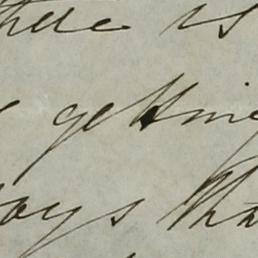 there is
getting
days tha